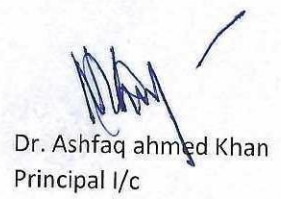 Dr. Ashfaq ahmed Khan
Principal I/c